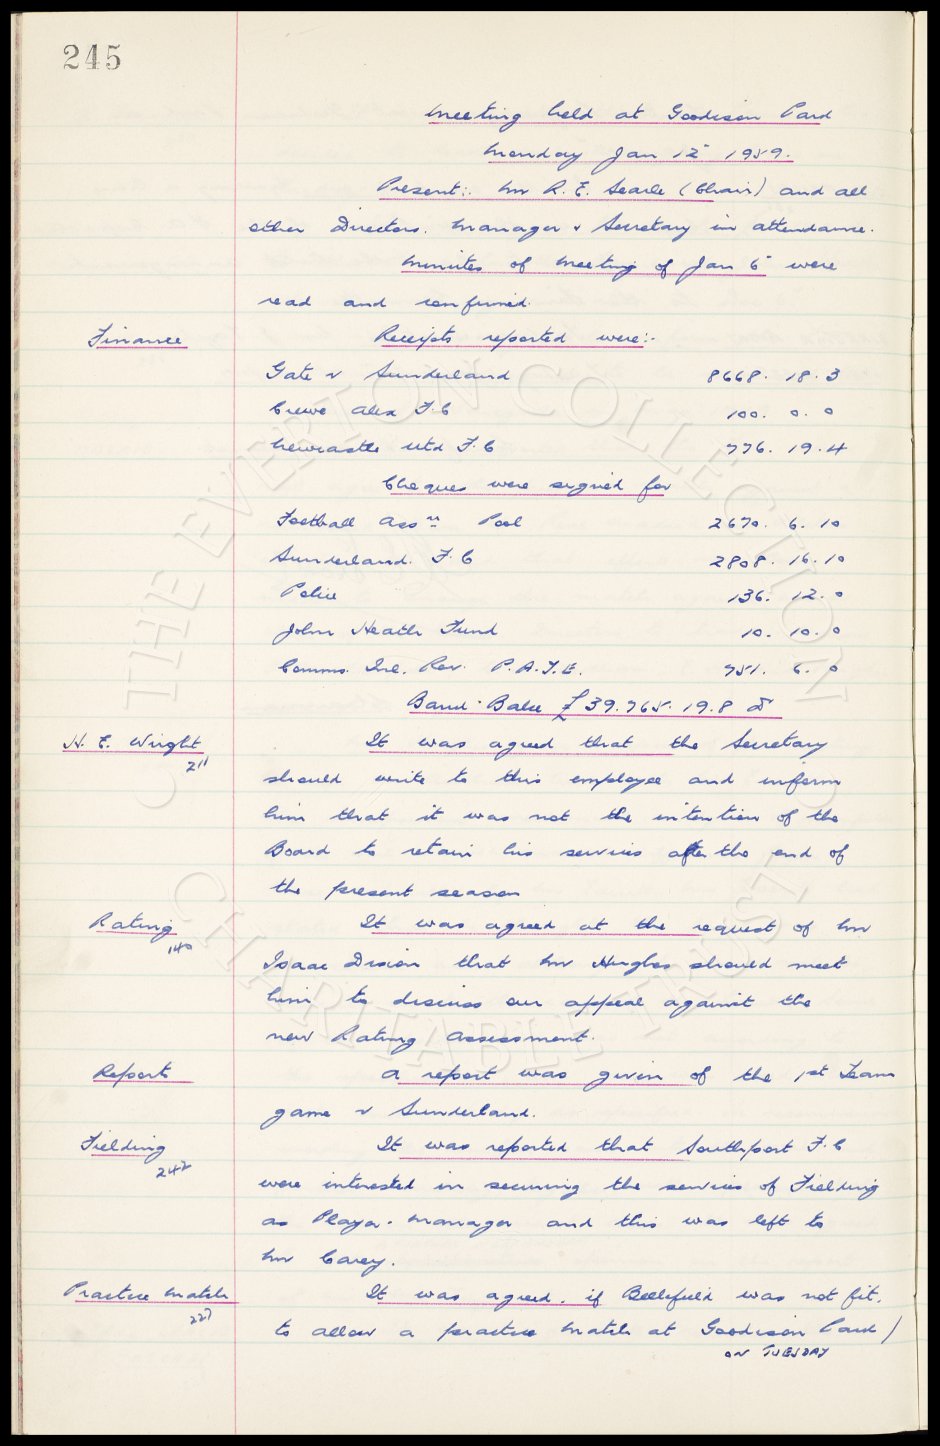 245
Meeting held at Goodison Park
Monday Jan 12" 1959.
Present:- Mr R. E. Searle (Chair) and all
other Directors. Manager & Secretary in attendance.
Minutes of Meeting of Jan 6" were
read and confirmed.
Finance Receipts reported were:-
Gate v Sunderland 8668. 18. 3
Crewe Alex F.C 100. 0. 0
Newcastle Utd F.C 776. 19. 4
Cheques were signed for
Football Assn Pool 2670. 6. 10
Sunderland. F.C 2808. 16. 10
Police 136. 12. 0
John Heath Fund 10. 10. 0
Comms. Inl. Rev. P.A.Y.E. 751. 6. 0
Bank Balce £39.765. 19. 8
H. E. Wright It was agreed that the Secretary
211 should write to this employee and inform
him that it was not the intention of the
Board to retain his services after the end of
the present season
Rating It was agreed at the request of Mr
140 Isaac Dixon that Mr Hughes should meet
him to discuss our appeal against the
new Rating Assessment.
Report A report was given of the 1st Team
game v Sunderland.
Fielding It was reported that Southport F.C
242 were interested in securing the services of Fielding
as Player-Manager and this was left to
Mr Carey.
Practice Match It was agreed. if Bellefield was not fit.
227 to allow a practice match at Goodison Park /
ON TUESDAY
© THE EVERTON COLLECTION
CHARITABLE TRUST